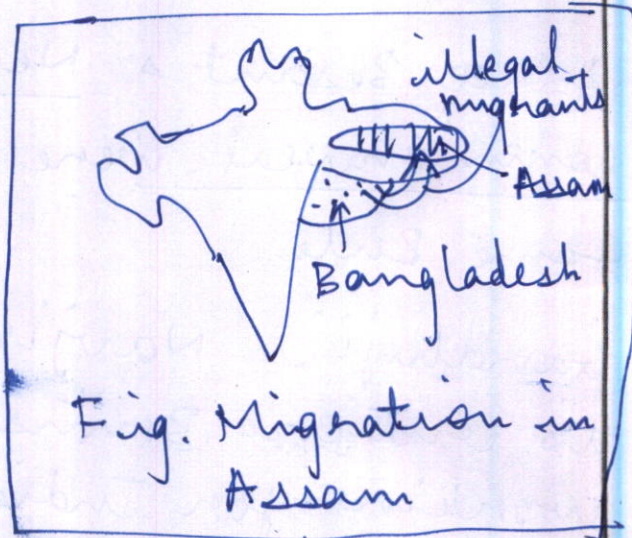 illegal
migrants
Assam
Bangladesh
Fig. Migration in
Assam